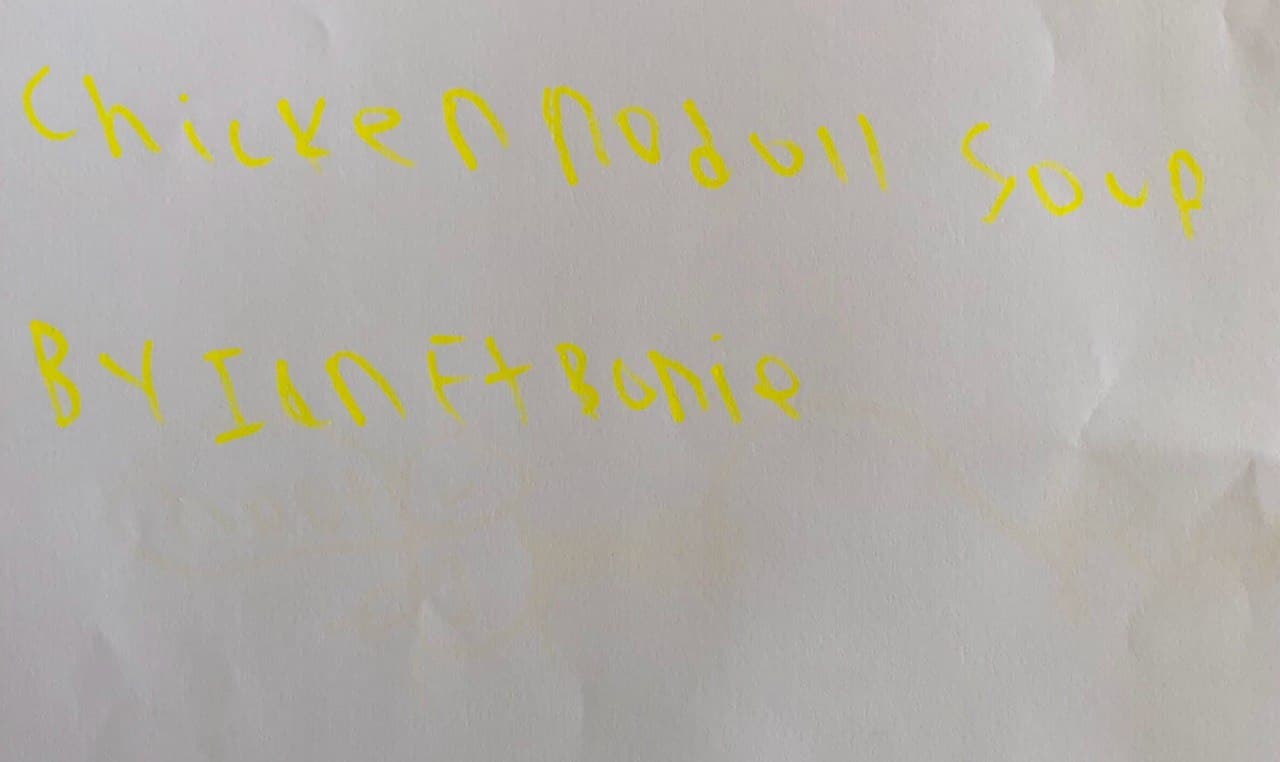 Chicken nodoll Soup
By Ian Ft Bonie